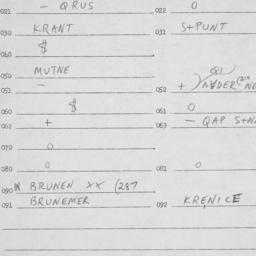 021 — QRUS 022 0
030 KRANT 031 S+PUNT
040 $
050 MUTNE
051 — 052 +
060 $ 061 0
062 + 063 — QAP
070 0
080 0 081 0
090 BRUNEN XX (287
091 BRUNEMER 092 KRENICE